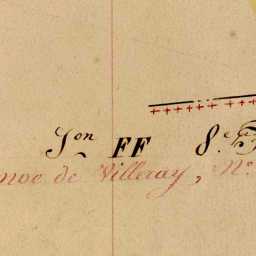 Son FF 8e
de Villeray, No.